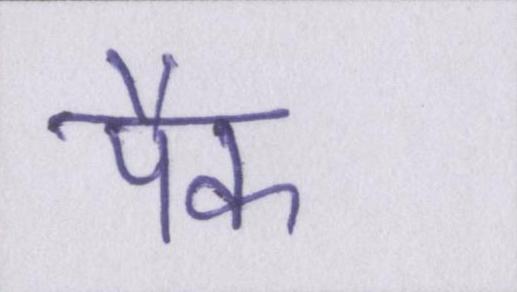 पैक